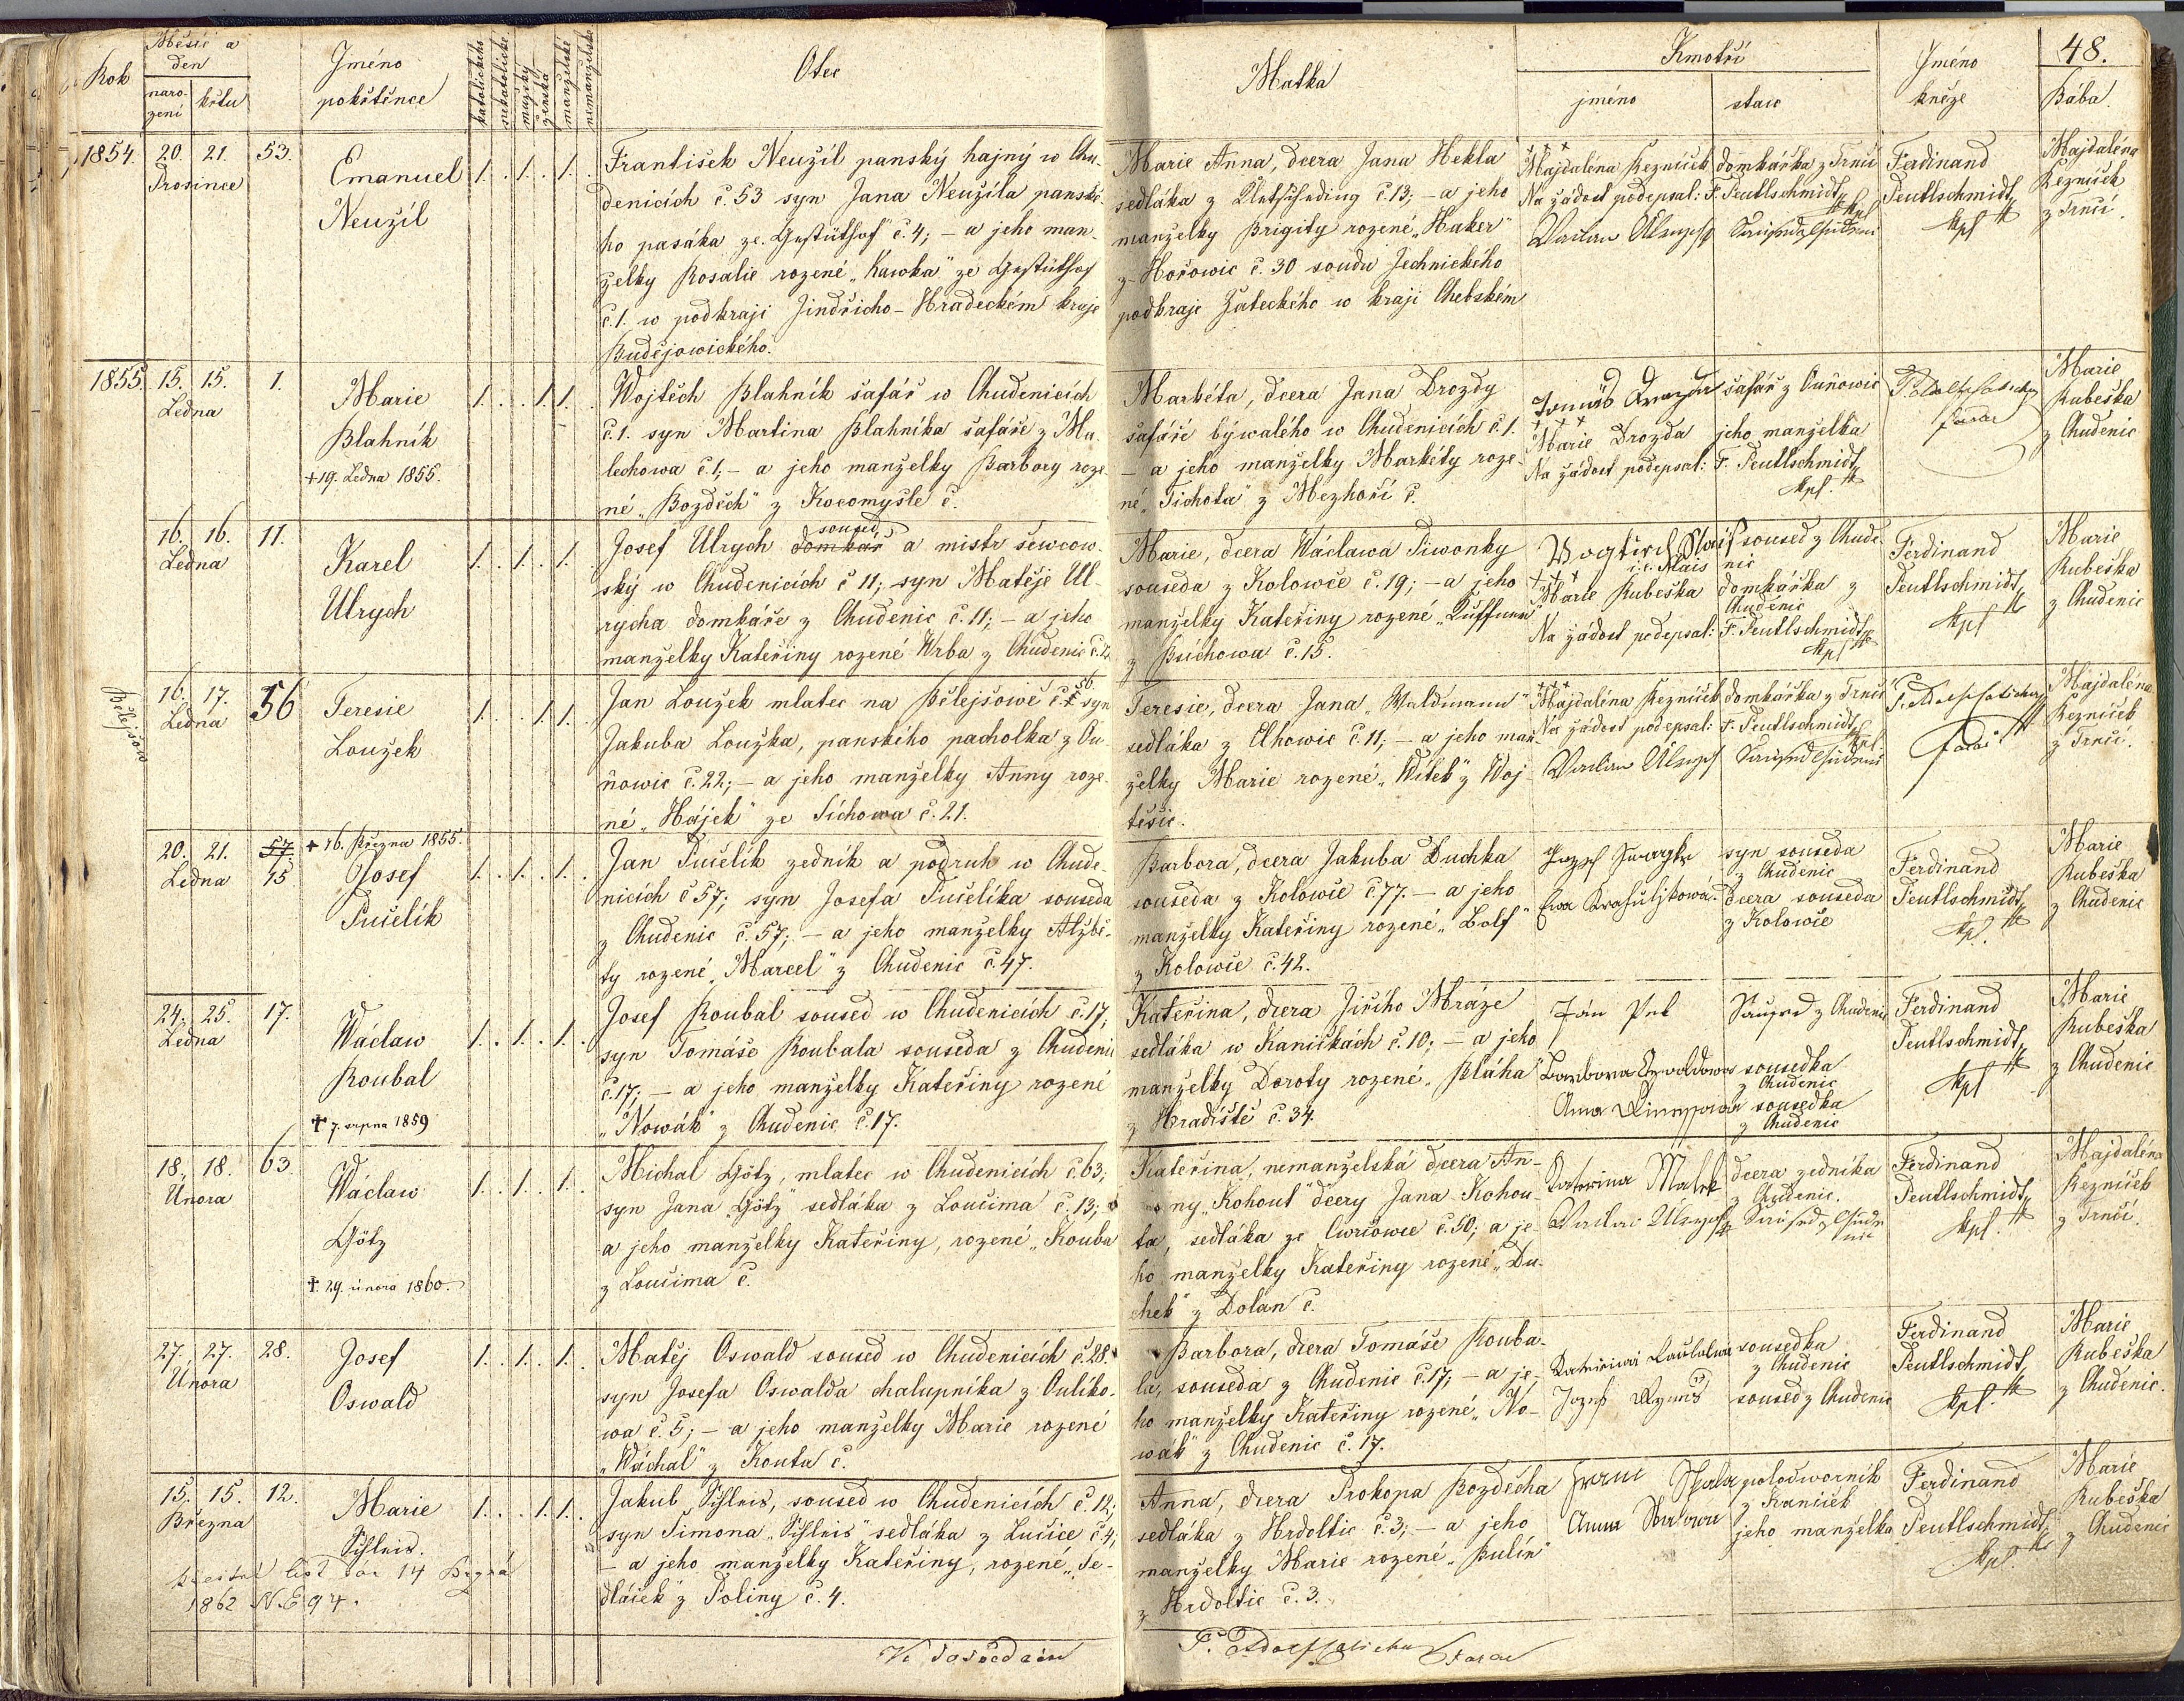 Rok
Měsíc a
den
naro-
zení
křtu
Jméno
pokřtěnce
katolického
nekatolické
mužský
ženská
manželské
nemanželské
Otec
Matka
Kmotři
jméno
staw
Jméno
kněze
48.
Bába
1854. 20. 21. 53.
Prosince
Emanuel
Neužil
1. 1. 1.
František Neužil panský hajný w Chu-
denicích č. 53 syn Jana Neužila panské-
ho pasáka ze Gestüthof č. 4; – a jeho man-
želky Rosalie rozené „Kawka" ze Gestüthof
č. 1. w podkraji Jindřicho-Hradeckém kraje
Budějowického.
Marie Anna, dcera Jana Hekla
sedláka z č. 13; – a jeho
manželky Brigity rozené „Haker"
z Hořowic č. 30 soudu Jechnického
podkraje Žateckého w kraji Chebském
+++
Majdaléna Řezníček domkářka z Trnčí
Na žádost podepsal: F. Peutlschmidt
Kpl.
Ferdinand
Peutlschmidt
Kpl.
Majdaléna
Řezníček
z Trnčí.
1855. 15. 15. 1.
Ledna
Marie
Blahník
+ 19. Ledna 1855.
1. 1. 1.
Wojtěch Blahník šafář w Chudenicích
č. 1. syn Martina Blahníka šafáře z Ma-
lechowa č. 1; – a jeho manželky Barbory roze-
né „Bozděch" z Kocomyšle č.
Markéta, dcera Jana Drozdy
šafáře býwalého w Chudenicích č. 1.
– a jeho manželky Markéty roze-
né „Tichota" z Mezhoří č.
šafář z Ouňowic
+++
Marie Drozda jeho manželka
Na žádost podepsal: F. Peutlschmidt
Kpl.
farář
Marie
Rubeška
z Chudenic
16. 16. 11.
Ledna
Karel
Ulrych
1. 1. 1.
soused
Josef Ulrych domkář a mistr šewcow-
ský w Chudenicích č 11; syn Matěje Ul-
rycha domkáře z Chudenic č. 11; – a jeho
manželky Kateřiny rozené Wrba z Chudenic č.
Marie, dcera Wáclawa Piwonky
souseda z Kolowče č. 19; – a jeho
manželky Kateřiny rozené
z Bsíchowa č. 15.
soused z Chude-
i.e. Mais nic
+++
Marie Rubeška domkářka z
Chudenic
Na žádost podepsal: F. Peutlschmidt
Kpl.
Ferdinand
Peutlschmidt
Kpl.
Marie
Rubeška
z Chudenic
16. 17. 56
Ledna
Teresie
Loužek
1. 1. 1.
Jan Loužek mlatec na Bělejšowě č. 56. syn
Jakuba Loužka, panského pacholka z Ou-
ňowic č. 22; – a jeho manželky Anny roze-
né „Hájek" ze Sichowa č. 21.
Teresie, dcera Jana „Waldmann"
sedláka z Elhowic č. 11; – a jeho man-
želky Marie rozené „Witek" z Woj-
těšic.
+++
Majdaléna Řezníček domkářka z Trnčí
Na žádost podepsal: F. Peutlschmidt
Kpl.
farář
Majdaléna
Řezníček
z Trnčí.
20. 21. 57.
Ledna 15
+ 16. Března 1855.
Josef
Pučelík
1. 1. 1.
Jan Pučelík zedník a podruh w Chude-
nicích č 57; syn Josefa Pučelíka souseda
z Chudenic č. 57; – a jeho manželky Alžbě-
ty rozené „Marcel" z Chudenic č. 47.
Barbora, dcera Jakuba Duchka
souseda z Kolowče č 77. – a jeho
manželky Kateřiny rozené „Bolf"
z Kolowče č. 42.
syn souseda
z Chudenic
dcera souseda
z Kolowče
Ferdinand
Peutlschmidt
Kpl.
Marie
Rubeška
z Chudenic
24. 25. 17.
Ledna
Wáclaw
Roubal
† 7. srpna 1859
1. 1. 1.
Josef Roubal soused w Chudenicích č. 17;
syn Tomáše Roubala souseda z Chudenic
č. 17; – a jeho manželky Kateřiny rozené
„Nowák" z Chudenic č. 17.
Kateřina, dcera Jiřího Mráze
sedláka w Kaničkách č. 10; – a jeho
manželky Doroty rozené „Bláha"
z Hradiště č. 34.
z Chudenic
Barbora sousedka
z Chudenic
Anna sousedka
z Chudenic
Ferdinand
Peutlschmidt
Kpl
Marie
Rubeška
z Chudenic
18. 18. 63.
Února
Wáclaw
Götz
†. 29. února 1860.
1. 1. 1.
Michal Götz, mlatec w Chudenicích č. 63;
syn Jana „Götz" sedláka z Loučima č. 13;
a jeho manželky Kateřiny, rozené „Kouba
z Loučima č.
Kateřina, nemanželská dcera An-
ny „Kohout" dcery Jana Kohou-
ta, sedláka ze Čwrčowce č. 50; a je-
ho manželky Kateřiny rozené „Du-
chek" z Dolan č.
Katerina Malek dcera zedníka
z Chudenic.
Ferdinand
Peutlschmidt
Kpl.
Majdaléna
Řezníček
z Trnčí.
27. 27. 28.
Února
Josef
Oswald
1. 1. 1.
Matěj Oswald soused w Chudenicích č. 28.
syn Josefa Oswalda chalupníka z Oulíko-
wa č. 5; – a jeho manželky Marie rozené
„Wáchal" z Kouta č.
Barbora, dcera Tomáše Rouba-
la, souseda z Chudenic č. 17; – a je-
ho manželky Kateřiny rozené „No-
wák" z Chudenic č. 17.
sousedka
z Chudenic
soused z Chudenic
Ferdinand
Peutlschmidt
Kpl.
Marie
Rubeška
z Chudenic.
15. 15. 12.
Března
Marie
1. 1. 1.
1862 N. E 94.
Jakub soused w Chudenicích č. 12;
syn Šimona sedláka z Lučice č. 4;
– a jeho manželky Kateřiny, rozené „Se-
dláček" z Poliny č. 4.
Anna, dcera Prokopa Bozděcha
sedláka z Hrdoltic č. 3; – a jeho
manželky Marie rozené „Bulín"
z Hrdoltic č. 3.
polodworník
z Kaniček
Anna jeho manželka
Ferdinand
Peutlschmidt
Kpl.
Marie
Rubeška
z Chudenic